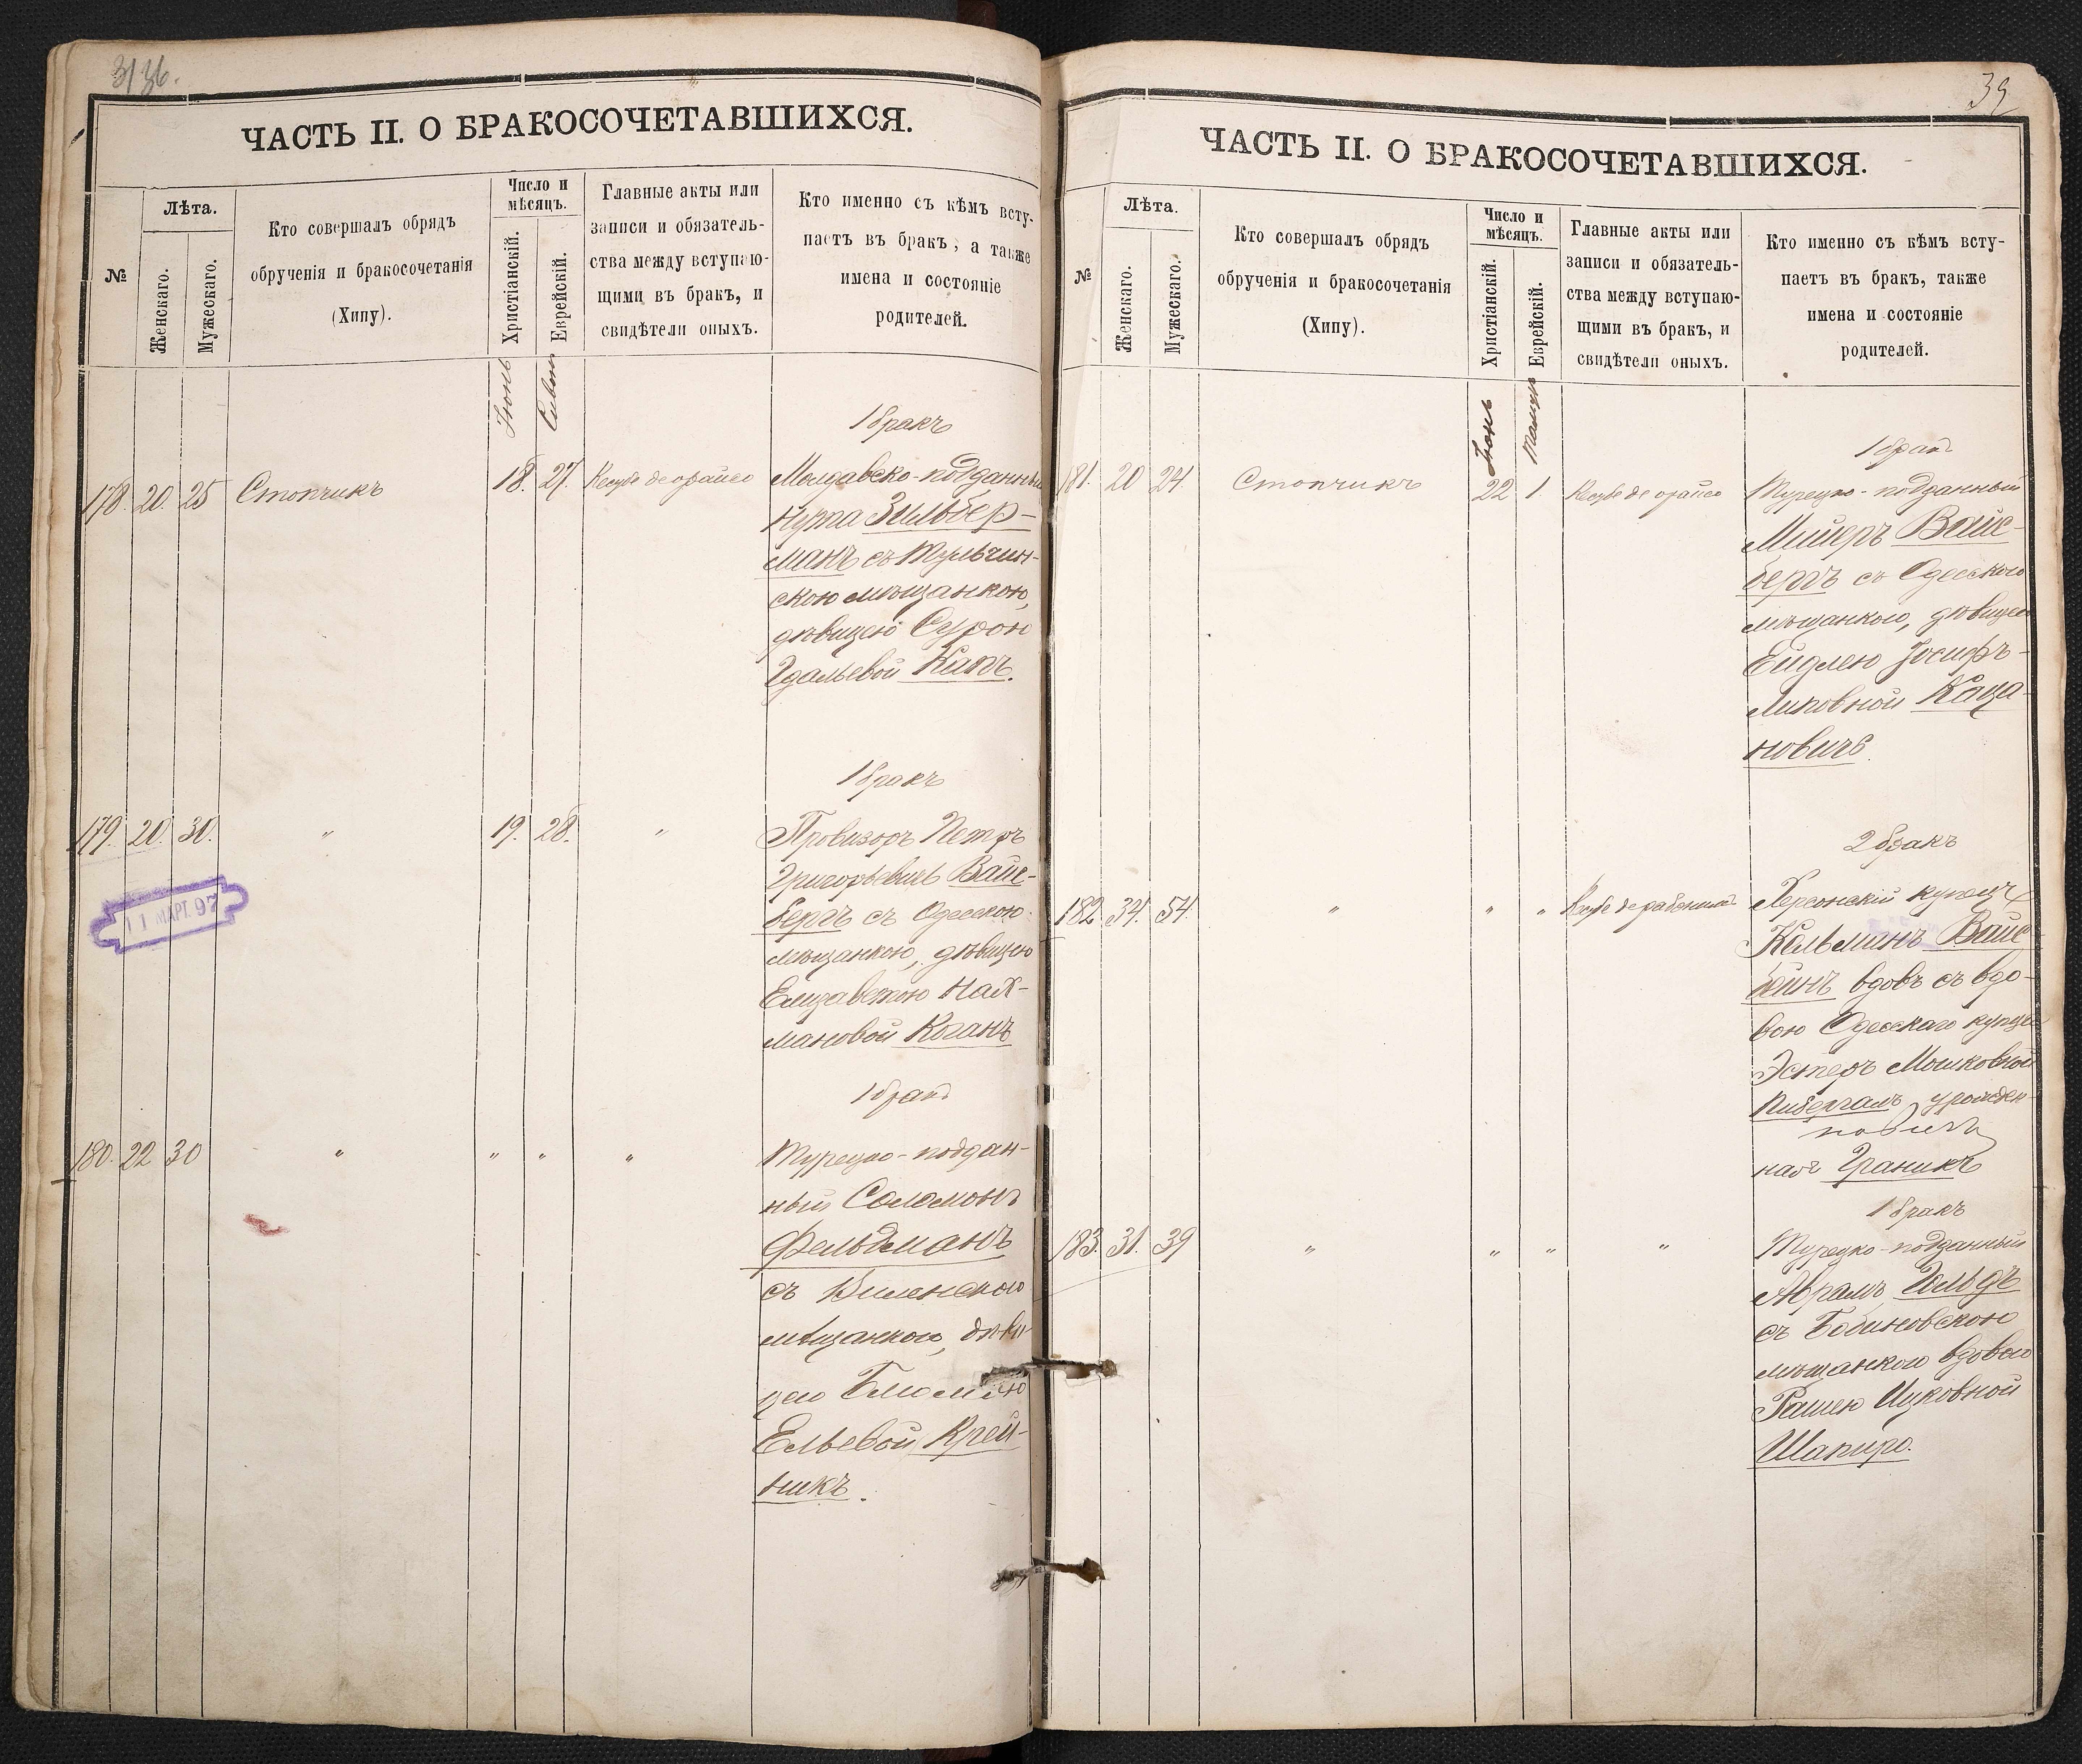 3136.
ЧАСТЬ II. О БРАКОСОЧЕТАВШИХСЯ.
№
Лѣта.
Женскаго.
Мужескаго.
Кто совершалъ обрядъ
обрученія и бракосочетанія
(Хипу).
Число и
мѣсяцъ.
Христіанскій.
Еврейскій.
Главные акты или
записи и обязатель-
ства между вступаю-
щими въ бракъ, и
свидѣтели оныхъ.
Кто именно съ кѣмъ всту-
паетъ въ бракъ, а также
имена и состояніе
родителей.
Іюнь
Сивон
1 бракъ
178. 20. 25 Стопчикъ 18. 27. Кесубе де орайсо Молдавско-подданный
Нута Зильбер-
манъ съ Тульчин-
скою мѣщанкою,
дѣвицею Сурою
Гдальевой Капъ.
1 бракъ
179. 20. 30. " 19. 28. " Провизоръ Петръ
Григорьевичъ Вайс-
бергъ съ Одесскою
мѣщанкою, дѣвицею
Елизаветою Нах-
мановой Коганъ
11 МАРТ. 97
1 бракъ
180. 22 30 " " " " Турецко-поддан-
ный Соломонъ
Фельдманъ
съ Виленскою
мѣщанкою, дѣви-
цею Блюмою
Ельевой Крей-
никъ.
39
ЧАСТЬ II. О БРАКОСОЧЕТАВШИХСЯ.
№
Лѣта.
Женскаго.
Мужескаго.
Кто совершалъ обрядъ
обрученія и бракосочетанія
(Хипу).
Число и
мѣсяцъ.
Христіанскій.
Еврейскій.
Главные акты или
записи и обязатель-
ства между вступаю-
щими въ бракъ, и
свидѣтели оныхъ.
Кто именно съ кѣмъ всту-
паетъ въ бракъ, также
имена и состояніе
родителей.
Іюнь
Тамузъ
1 бракъ
181. 20 24. Стопчикъ 22 1. Кесубе де орайсо Турецко-подданный
Мейеръ Вайс-
бергъ съ Одесскою
мѣщанкою, дѣвицею
Ейдлею Іосифъ-
Липовной Каца-
новичъ.
2 бракъ
182. 34. 54. " " " Херсонскій купецъ
Кельманъ Вайс-
бейнъ вдовъ съ вдо-
вою Одесскаго купца
Эстеръ Мошковной
урожден-
ная Граникъ
1 бракъ
183. 31. 39 " " " " Турецко-подданный
Абрамъ Гольдъ
съ Бобиновскою
мѣщанкою вдовою
Рашею Ицковной
Шапиро.